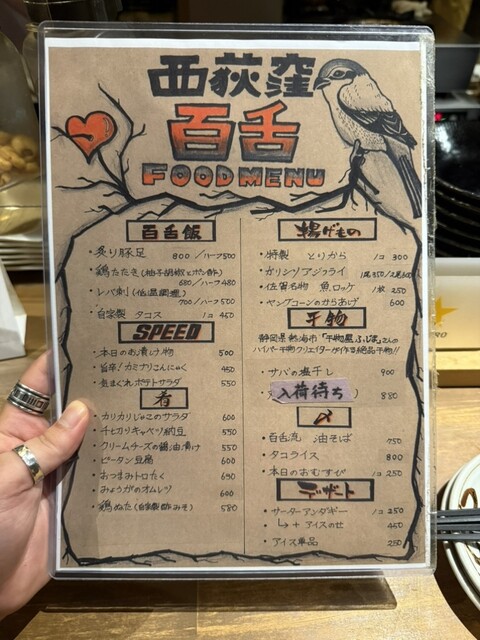 西荻窪
百舌
FOOD MENU
百舌飯
・炙り豚足 800 /ハーフ500
・鶏たたき(柚子胡椒とポン酢)
680/ハーフ480
・レバ刺(低温調理)
700/ハーフ500
・自家製 タコス 1コ 450
SPEED
・本日のお漬け物 500
・旨辛!カミナリこんにゃく 450
・気まぐれポテトサラダ 550
肴
・カリカリじゃこのサラダ 600
・千切りキャベツ納豆 550
・クリームチーズの醤油漬け 550
・ピータン豆腐 600
・おつまみトロたく 690
・みょうがのオムレツ 600
・鶏ぬた(自家製酢みそ) 580
揚げもの
・特製 とりから 1コ 300
・ガリシソアジフライ 1尾350/2尾600
・佐賀名物 魚ロッケ 1枚 250
・ヤングコーンのからあげ 600
干物
静岡県熱海市「干物屋ふじま」さんの
ハイパー干物クリエイターが作る絶品干物!!
・サバの塩干し 900
入荷待ち 880
〆
・百舌流 油そば 750
・タコライス 800
・本日のおむすび 1コ 250
デザート
・サーターアンダギー 1コ 250
↳ + アイスのせ 450
・アイス単品 250